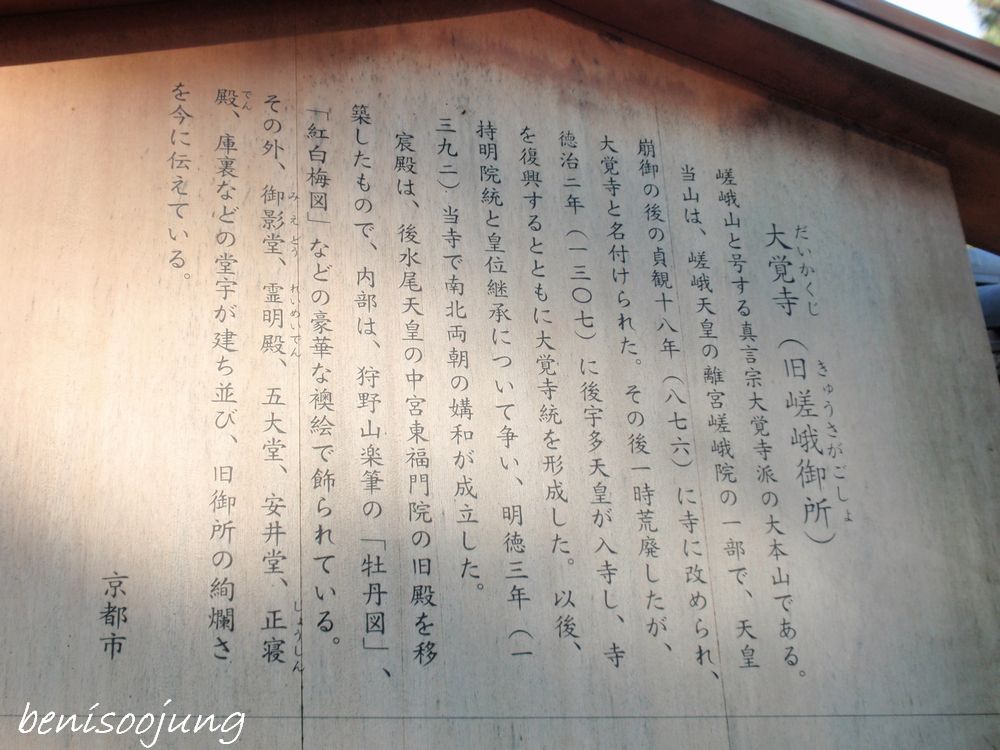 大覚寺（旧嵯峨御所）
だいかくじ
きゅうさがごしょ
嵯峨山と号する真言宗大覚寺派の大本山である。
当山は、嵯峨天皇の離宮嵯峨院の一部で、天皇
崩御の後の貞観十八年（八七六）に寺に改められ、
大覚寺と名付けられた。その後一時荒廃したが、
徳治二年（一三〇七）に後宇多天皇が入寺し、寺
を復興するとともに大覚寺統を形成した。以後、
持明院統と皇位継承について争い、明徳三年（一
三九二）当寺で南北両朝の媾和が成立した。
宸殿は、後水尾天皇の中宮東福門院の旧殿を移
築したもので、内部は、狩野山楽筆の「牡丹図」、
「紅白梅図」などの豪華な襖絵で飾られている。
その外、御影堂、霊明殿、五大堂、安井堂、正寝
みえどう
れいめいでん
しょうしん
殿、庫裏などの堂宇が建ち並び、旧御所の絢爛さ
でん
を今に伝えている。
京都市
benisoojung